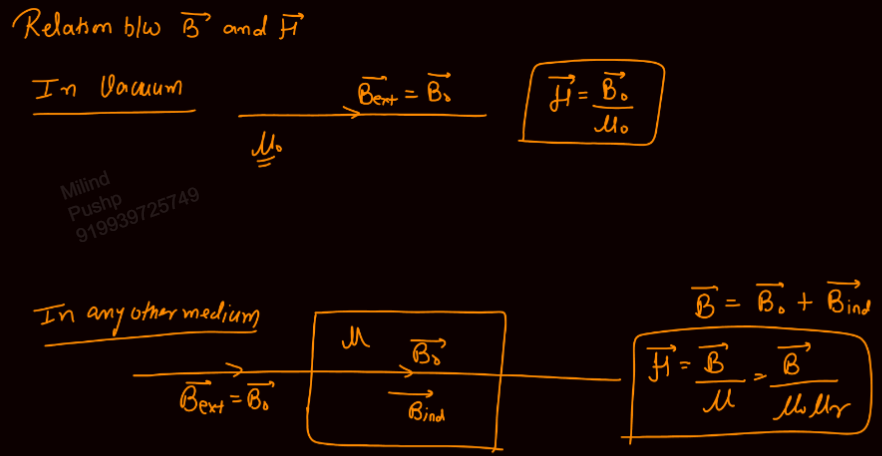 Relation b/w B⃗ and H⃗
In Vacuum
B⃗ext = B⃗₀
μ₀
H⃗ = B⃗₀/μ₀
Milind
Pushp
919939725749
In any other medium
B⃗ext = B⃗₀
μ
B⃗₀
B⃗ind
B⃗ = B⃗₀ + B⃗ind
H⃗ = B⃗/μ = B⃗/μ₀μr